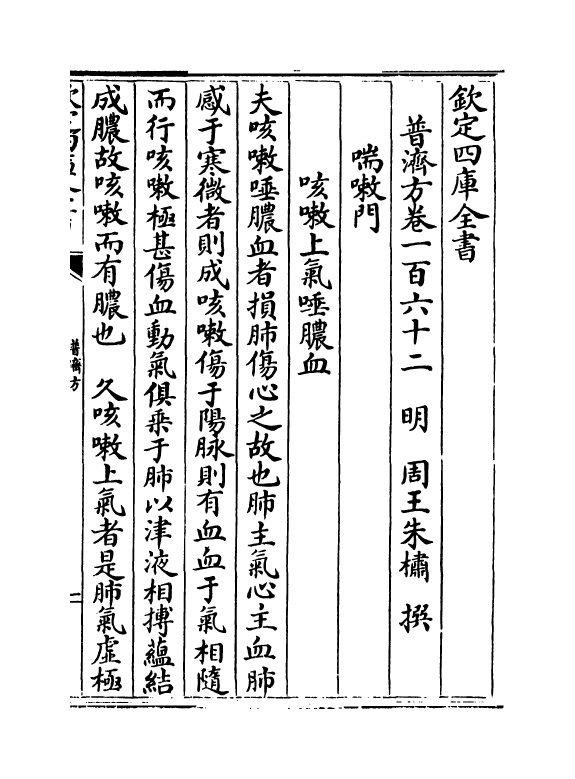 欽定四庫全書
普濟方卷一百六十二　明　周王朱橚　撰
喘嗽門
咳嗽上氣唾膿血
夫咳嗽唾膿血者損肺傷心之故也肺主氣心主血肺
感于寒微者則成咳嗽傷于陽脉則有血血于氣相隨
而行咳嗽極甚傷血動氣俱乘于肺以津液相搏蘊結
成膿故咳嗽而有膿也　久咳嗽上氣者是肺氣虛極
普濟方
一